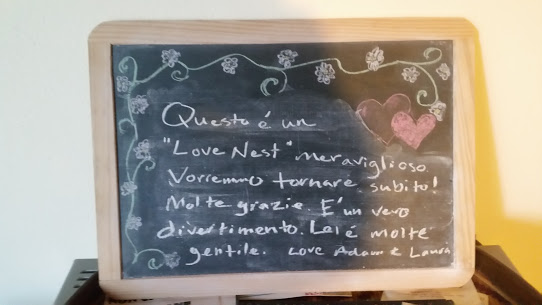 Questo é un
"Love Nest" meraviglioso.
Vorremmo tornare subito!
Molte grazie. E'un vero
divertimento. Lei é molte
gentile. Love Adam & Laura